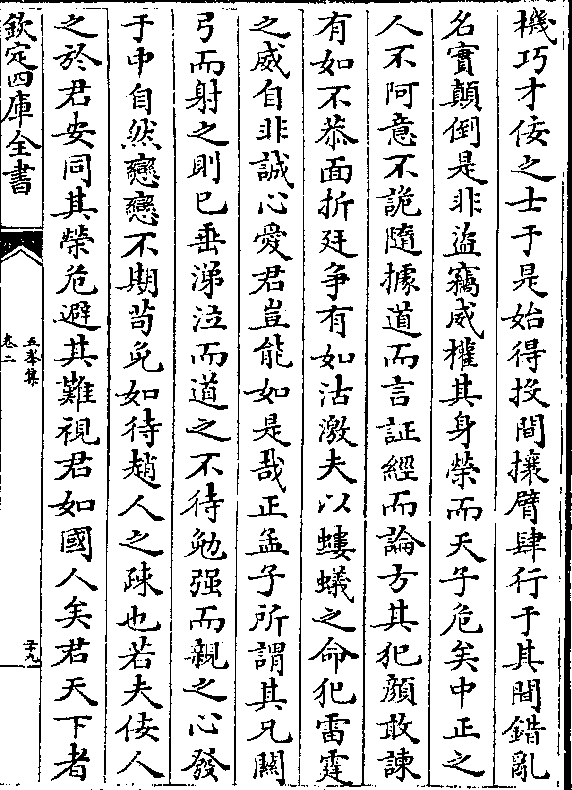 機巧才佞之士于是始得投間攘臂肆行于其間錯亂
名實顛倒是非盜竊威權其身榮而天子危矣中正之
人不阿意不詭隨據道而言証經而論方其犯顔敢諫
有如不恭面折廷爭有如沽激夫以螻蟻之命犯雷霆
之威自非誠心愛君豈能如是哉正孟子所謂其兄關
弓而射之則已垂涕泣而道之不待勉强而親之心發
于中自然戀戀不期茍免如待越人之疎也若夫佞人
之於君安同其榮危避其難視君如國人矣君天下者
欽定四庫全書
五峯集
卷二
二十九